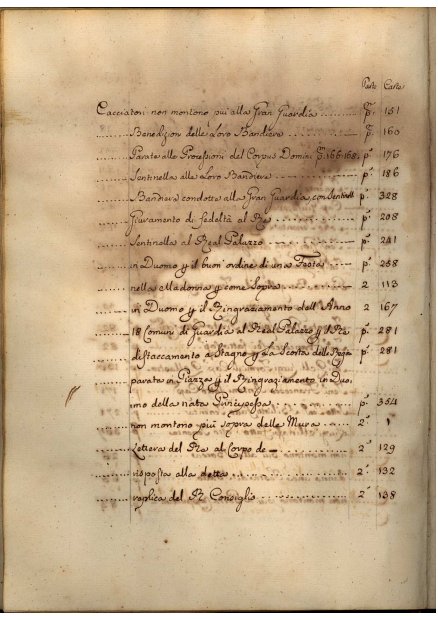 Parte Carte
Cacciatori non montono piu alla Gran Guardia pª. 151
Benedizion delle Loro Bandiere pª. 160
Parate alle Processioni del Corpus Domini pª. 166. 168. pª 176
Sentinella alle Loro Bandiere pª 186
Bandiere condotte alla Gran Guardia, con Sentinell pª 328
Giuramento di fedeltà al Re pª 208
Sentinella al Real Palazzo pª 241
in Duomo p il buon' ordine di una Festa pª 258
nella Madonna p come Sopra 2 113
in Duomo p il Ringraziamento dell' Anno 2 167
18 Comuni di Guardia al Real Palazzo p il Re pª 281
distaccamento a Stagno p La Scorta della Regia pª 281
parata in Piazza p il Ringraziamento in Duo
mo della nata Principessa pª 354
non montono più sopra delle Mura 2ª 1
Lettera del Re al Corpo de 2ª 129
risposta alla detta 2ª 132
replica del R. Consiglio 2ª 138